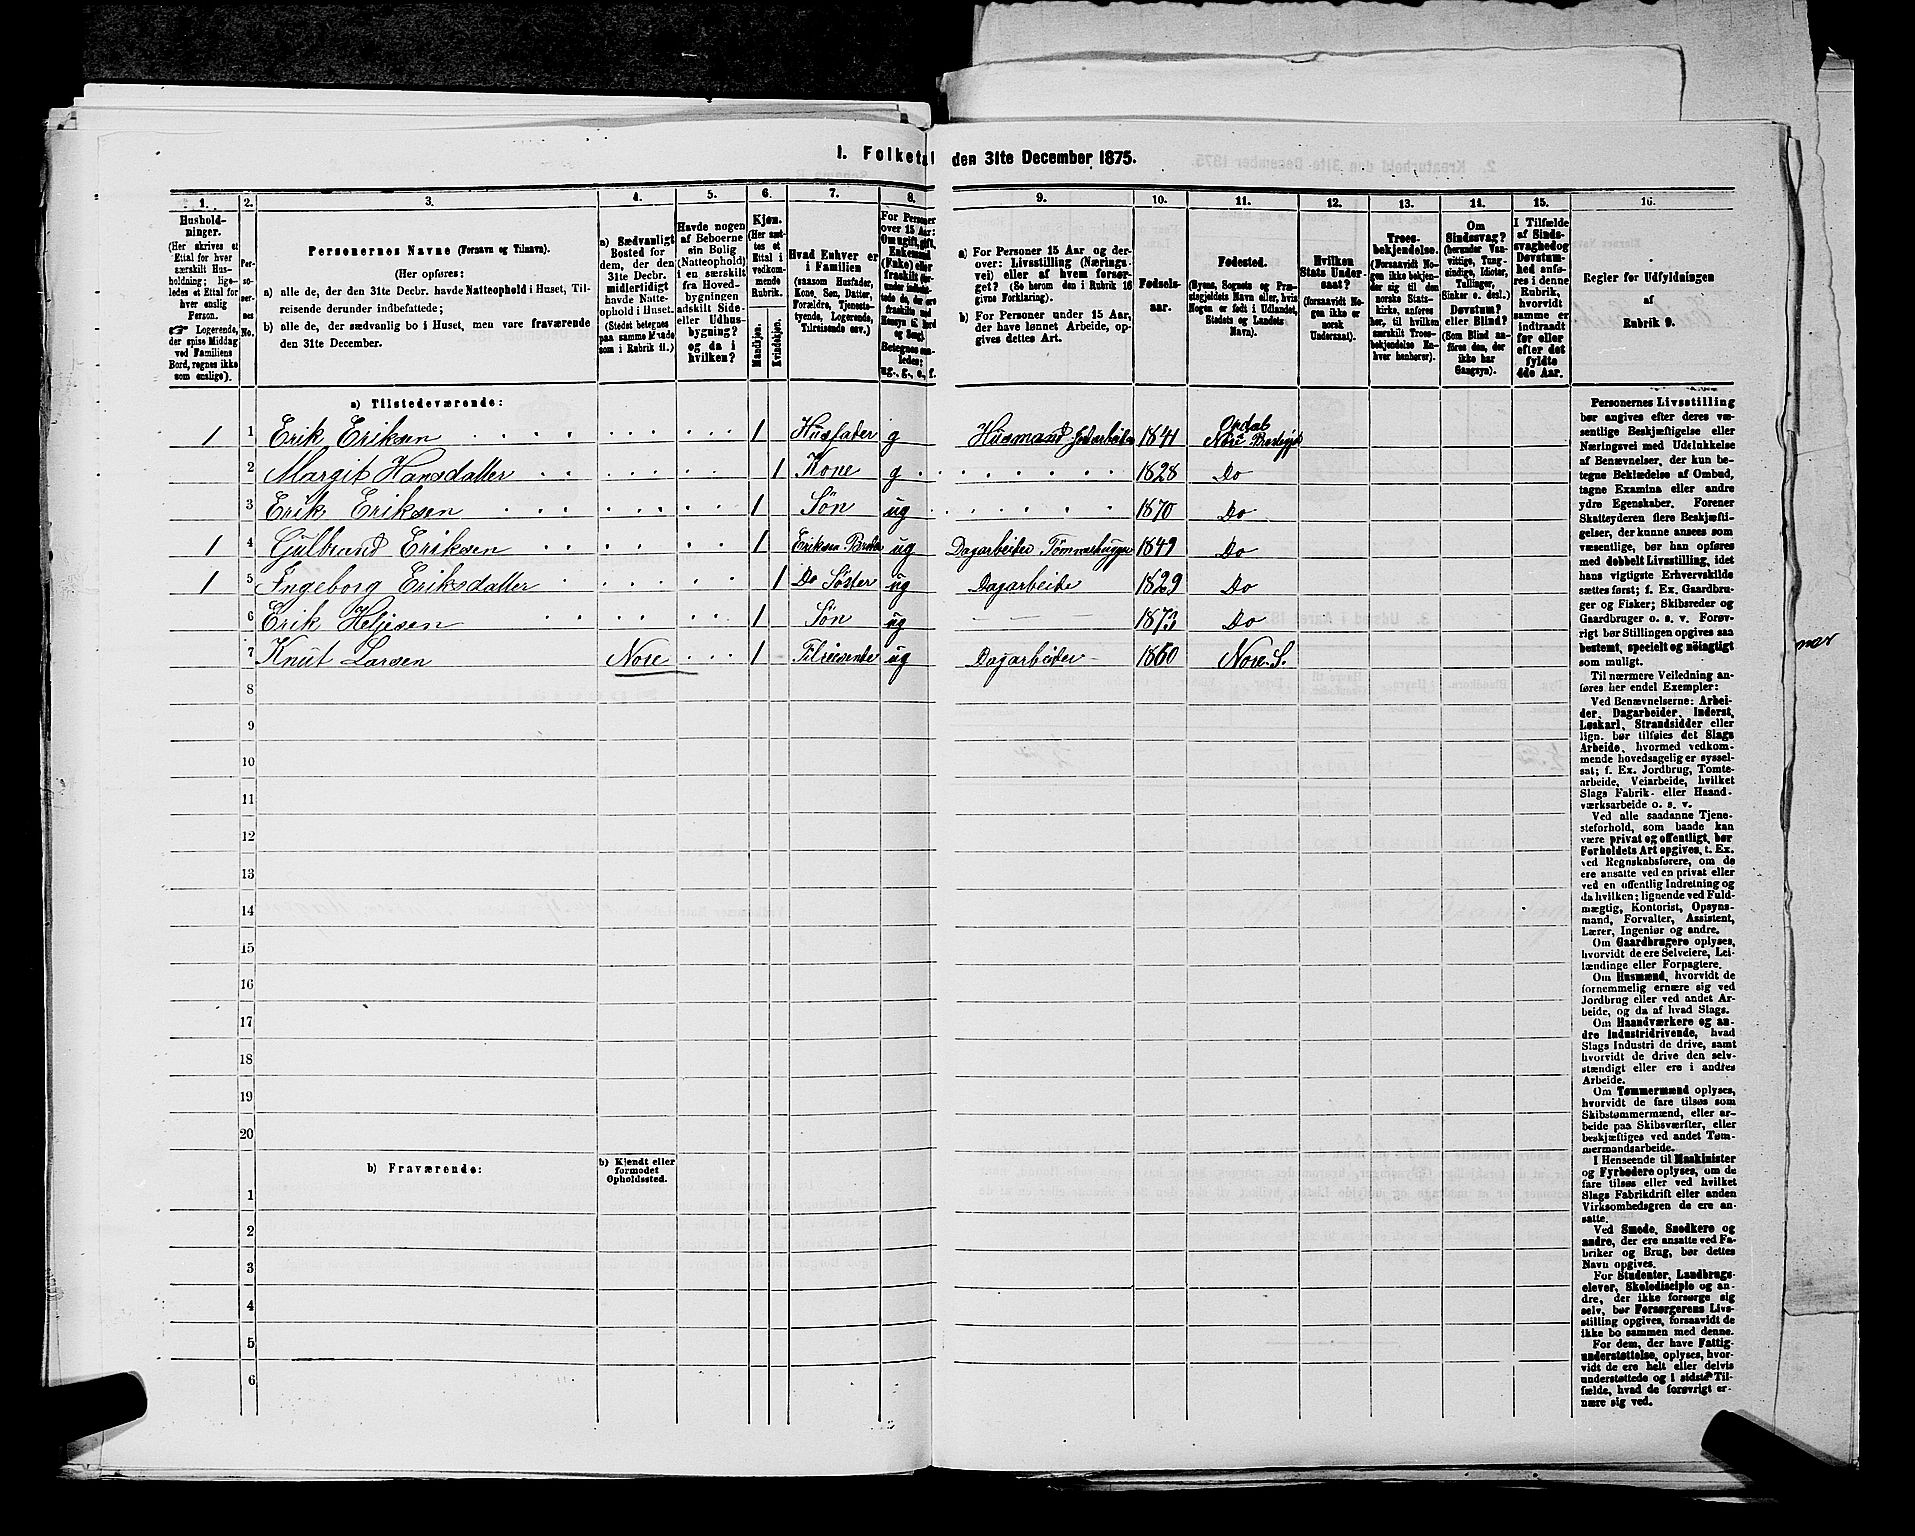 1. Folketa
den 31te December 1875.
1.
2.
3.
4.
5.
6.
7.
8.
9.
10.
11.
12.
13.
14.
15.
16.
Hushold-
ninger.
(Her skrives et
Ettal for hver
særskilt Hus-
holdning; lige-
ledes et Ettal for
hver enslig
Person.
☞ Logerende,
der spise Middag
ved Familiens
Bord, regnes ikke
som enslige).
Per-
so-
ner-
nes
No.
Personernes Navne (Fornavn og Tilnavn).
(Her opføres:
a) alle de, der den 31te Decbr. havde Natteophold i Huset, Til-
reisende derunder indbefattede;
b) alle de, der sædvanlig bo i Huset, men vare fraværende
den 31te December.
a) Sædvanligt
Bosted for
dem, der den
31te Decbr.
midlertidigt
havde Natte-
ophold i Huset.
(Stedet betegnes
paa samme Maade
som i Rubrik 11.)
Havde nogen
af Beboerne
sin Bolig
(Natteophold)
i en særskilt
fra Hoved-
bygningen
adskilt Side-
eller Udhus-
bygning?
og da i
hvilken?
Kjøn.
(Her sæt-
tes et
Ettal i
vedkom-
mende
Rubrik.
Mandkjøn.
Kvindekjøn.
Hvad Enhver er
i Familien
(saasom Husfader,
Kone, Søn, Datter,
Forældre, Tjeneste-
tyende, Logerende,
Tilreisende osv.)
For Personer
over 15 Aar:
Om ugift, gift,
Enkemand
(Enke) eller
fraskilt
ug., g., e., f.
a) For Personer 15 Aar og der-
over: Livsstilling (Nærings-
vei) eller af hvem forsør-
get? (Se herom den i Rubrik 16
givne Forklaring).
b) For Personer under 15 Aar,
der have lønnet Arbeide, op-
gives dettes Art.
Fødsels-
aar.
Fødested.
(Byens, Sognets og Præ-
stegjeldets Navn eller, hvis
Nogen er født i Udlandet,
Stedets og Landets
Navn).
Hvilken
Stats Under-
saat?
(forsaavidt No-
gen ikke er
norsk
Undersaat).
Troes-
bekjendelse.
(Forsaavidt No-
gen ikke bekjen-
der sig til den
norske Stats-
kirke, anføres
her, til hvilken
særskilt Troes-
bekjendelse En-
hver henhører).
Om
Sindssvag?
(herunder Van-
vittige, Tung-
sindige, Idioter,
Tullinger,
Sinker o. desl.)
Døvstum?
eller Blind?
(Som Blind an-
føres den, der
ikke har
Gangsyn).
I Tilfælde
af Sinds-
svaghed og
Døvstum-
hed anfø-
res i denne
Rubrik,
hvorvidt
samme er
indtraadt
før eller
efter det
fyldte
4de Aar.
Regler for Udfyldningen
af
Rubrik 9.
a) Tilstedeværende:
1 1 Erik Eriksen 1 Husfader g Husmand Jordarbeide 1841 Opdal Nore Prestegjd
2 Margit Hansdatter 1 Kone g 1828 Do
3 Erik Eriksen 1 Søn ug 1870 Do
1 4 Gulbrand Eriksen 1 Eriksen Broder ug Dagarbeider Tømmerhugger 1849 Do
1 5 Ingeborg Eriksdatter 1 Do Søster ug Dagarbeide 1829 Do
6 Erik Heljesen 1 Søn ug 1873 Do
7 Knut Larsen Nore 1 Tilreisende ug Dagarbeider 1860 Nore. S.
8
9
10
11
12
13
14
15
16
17
18
19
20
b) Fraværende:
b) Kjendt eller
formodet
Opholdssted.
1
2
3
4
5
6
Personernes Livsstilling
bør angives efter deres væ-
sentlige Beskjæftigelse eller
Næringsvei med Udelukkelse
af Benævnelser, der kun be-
tegne Beklædelse af Ombud,
tagne Examina eller andre
ydre Egenskaber. Forener
Skatteyderen flere Beskjæfti-
gelser, der kunne ansees som
væsentlige, bør han opføres
med dobbelt Livsstilling, idet
hans vigtigste Erhvervskilde
sættes først; f. Ex. Gaardbru-
ger og Fisker; Skibsreder og
Gaardbruger o. s. v. Forøv-
rigt bør Stillingen opgives saa
bestemt, specielt og nøiagtigt
som muligt.
Til nærmere Veiledning an-
føres her endel Exempler:
Ved Benævnelserne: Arbei-
der, Dagarbeider, Inderst,
Løskarl, Strandsidder eller
lign. bør tilføies det Slags
Arbeide, hvormed vedkom-
mende hovedsagelig er syssel-
sat; f. Ex. Jordbrug, Tomte-
arbeide, Veiarbeide, hvilket
Slags Fabrik- eller Haand-
værksarbeide o. s. v.
Ved alle saadanne Tjene-
steforhold, som baade kan
være privat og offentligt, bør
Forholdets Art opgives, f. Ex.
ved Regnskabsførere, om de
ere ansatte ved en privat eller
ved en offentlig Indretning og
da hvilken; lignende ved Fuld-
mægtig, Kontorist, Opsyns-
mand, Forvalter, Assistent,
Lærer, Ingeniør og andre.
Om Gaardbrugere oplyses,
hvorvidt de ere Selveiere, Lei-
lændinge eller Forpagtere.
Om Husmænd, hvorvidt de
fornemmelig ernære sig ved
Jordbrug eller ved andet Ar-
beide, og da af hvad Slags.
Om Haandværkere og an-
dre Industridrivende, hvad
Slags Industri de drive, samt
hvorvidt de drive den selv-
stændigt eller ere i andres
Arbeide.
Om Tømmermænd oplyses,
hvorvidt de fare tilsøs som
Skibstømmermænd, eller ar-
beide paa Skibsværfter, eller
beskjæftiges ved andet Tøm-
mermandsarbeide.
I Henseende til Maskinister
og Fyrbødere oplyses, om de
fare tilsøs eller ved hvilket
Slags Fabrikdrift eller anden
Virksomhedsgren de ere an-
satte.
Ved Smede, Snedkere og
andre, der ere ansatte ved Fa-
briker og Brug, bør dettes
Navn opgives.
For Studenter, Landbrugs-
elever, Skoledisciple og an-
dre, der ikke forsørge sig
selv, bør Forsørgerens Livs-
stilling opgives, forsaavidt de
ikke bo sammen med denne.
For dem, der have Fattig-
understøttelse, oplyses, hvor-
vidt de ere helt eller delvis
understøttede og i sidste Til-
fælde, hvad de forøvrigt er-
nære sig ved.